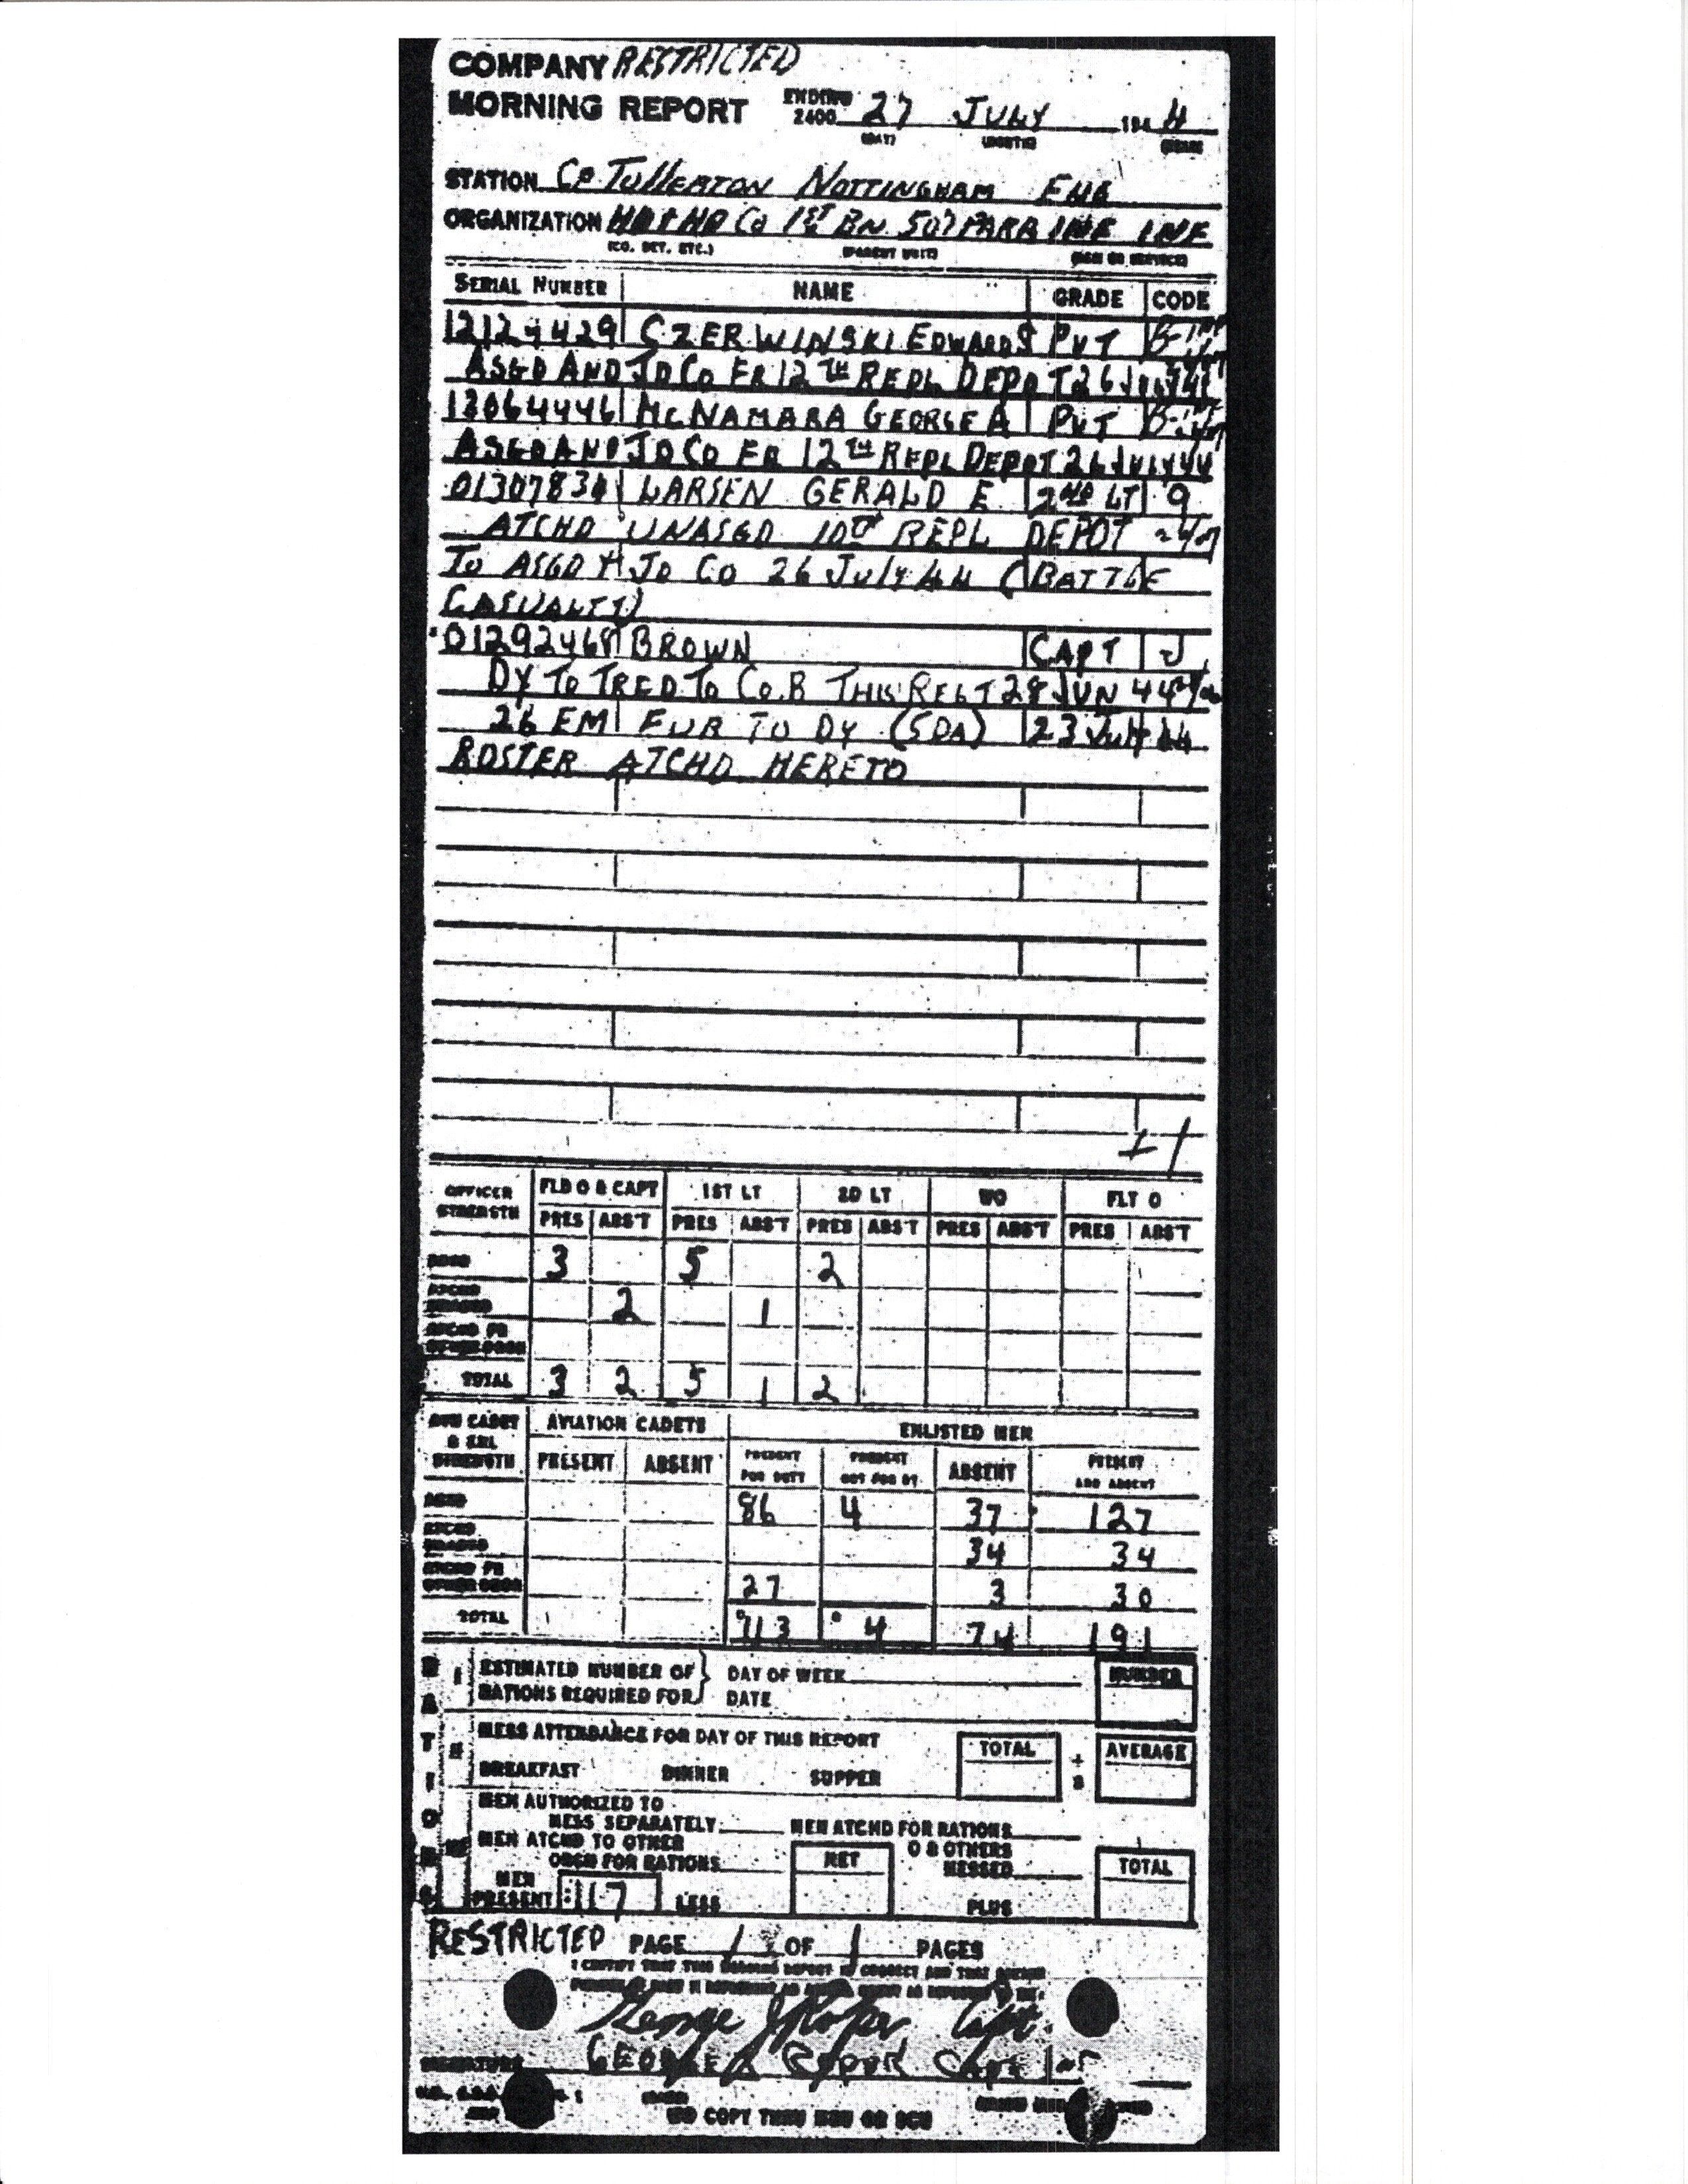 COMPANY RESTRICTED
MORNING REPORT ENDING 2400 27 JULY 194 4
(DAY) (MONTH) (YEAR)
STATION CP TOLLERTON NOTTINGHAM ENG
ORGANIZATION HQ & HQ CO 1ST BN 507 PARA INF INF
(CO. DET. ETC.) (PARENT UNIT) (ARM OR SERVICE)
SERIAL NUMBER NAME GRADE CODE
12124429 CZERWINSKI EDWARD S PVT
ASGD AND JD CO FR 12TH REPL DEPOT 26 JULY 44
13064446 MCNAMARA GEORGE A PVT
ASGD AND JD CO FR 12TH REPL DEPOT 26 JULY 44
LARSEN GERALD E 2ND LT 9
ATCHD UNASGD 10TH REPL DEPOT
TO ASGD & JD CO 26 JULY 44 (BATTLE
CASUALTY)
01292468 BROWN CAPT J
DY TO TRFD TO CO. B THIS REGT 28 JUN 44
26 EM FUR TO DY (SDA) 23 JULY 44
ROSTER ATCHD HERETO
+1
OFFICER STRENGTH FLD O & CAPT 1ST LT 2D LT WO FLT O
PRES ABS'T PRES ABS'T PRES ABS'T PRES ABS'T PRES ABS'T
ASGD 3 5 2
ATCHD UNASGD 2 1
ATCHD FR OTHER ORGN
TOTAL 3 2 5 1 2
AVN CADET & ENL STRENGTH AVIATION CADETS ENLISTED MEN
PRESENT ABSENT PRESENT FOR DUTY PRESENT NOT FOR DY ABSENT PRESENT AND ABSENT
ASGD 86 4 37 127
ATCHD UNASGD 34 34
ATCHD FR OTHER ORGN 27 3 30
TOTAL 113 4 74 191
RATIONS
I ESTIMATED NUMBER OF RATIONS REQUIRED FOR } DAY OF WEEK DATE NUMBER
II MESS ATTENDANCE FOR DAY OF THIS REPORT TOTAL ÷ 3 AVERAGE
BREAKFAST DINNER SUPPER
MEN AUTHORIZED TO
MESS SEPARATELY MEN ATCHD FOR RATIONS
III MEN ATCHD TO OTHER ORGN FOR RATIONS NET O & OTHERS MESSED TOTAL
MEN PRESENT 117 LESS PLUS
RESTRICTED PAGE 1 OF 1 PAGES
I CERTIFY THAT THIS MORNING REPORT IS CORRECT AND THAT
George J Roper Capt.
SIGNATURE GEORGE J ROPER Capt Inf
COPY THRU MRU OR SCU